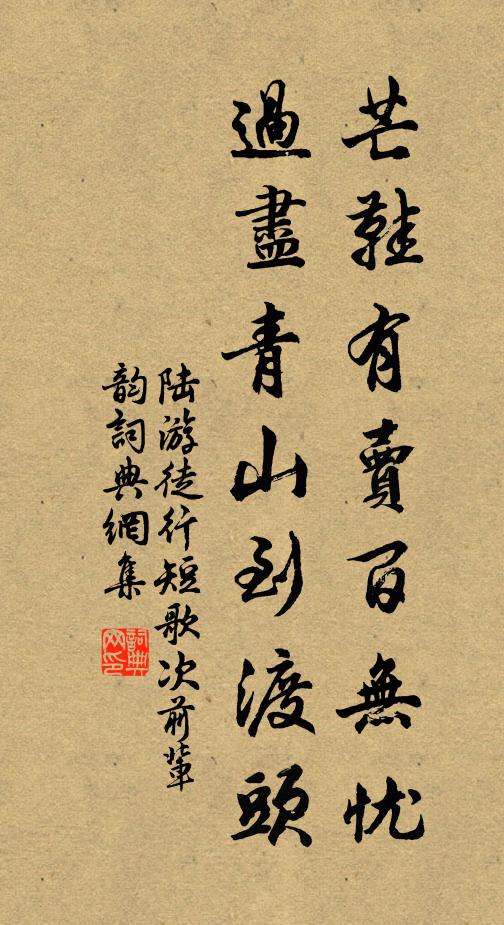 芒鞋有賣百無忧
過盡青山到渡頭
陆游徒行短歌次前輩
韵詞典網集
詞典
网印